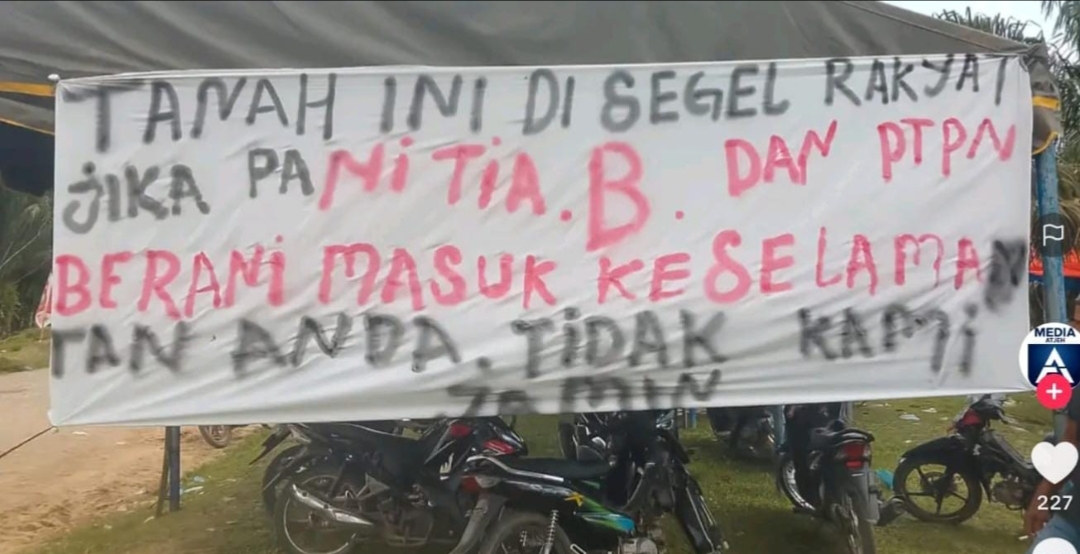 TANAH INI DI SEGEL RAKYAT
JIKA PANiTiA.B. DAN PTPN
BERANi MASUK KESELAMAN
TAN ANDA. TiDAK KAMi
JAMIN
MEDIA
ATJEH
227